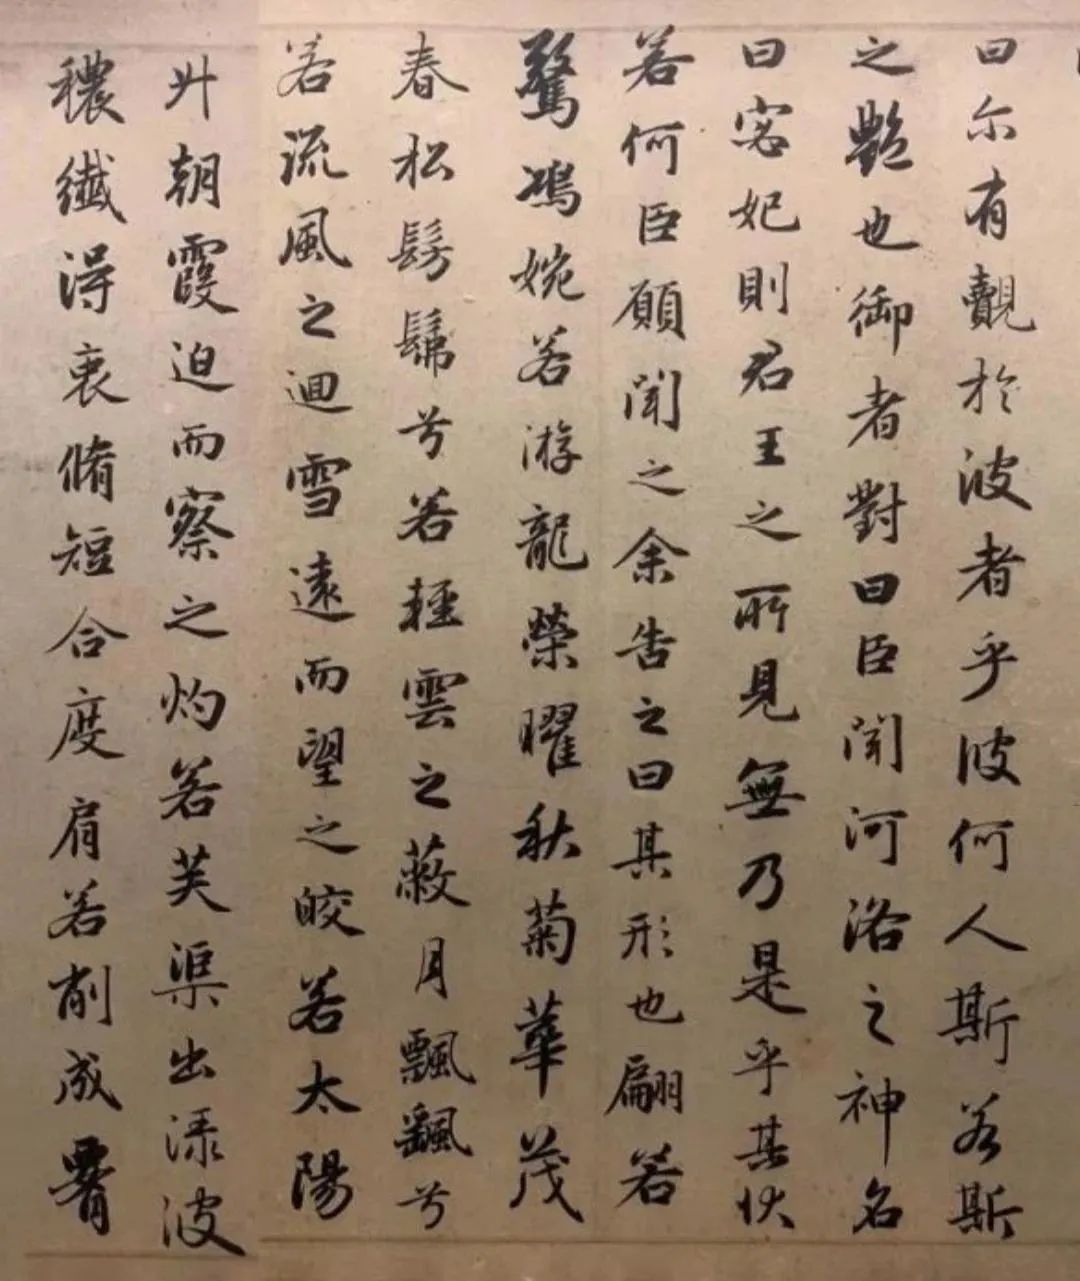 曰尔有觀於波者乎彼何人斯若斯
之艷也御者對曰臣聞河洛之神名
曰宓妃則君王之所見無乃是乎其状
若何臣願聞之余告之曰其形也翩若
驚鴻婉若游龍榮曜秋菊華茂
春松髣髴兮若輕雲之蔽月飄飖兮
若流風之迴雪遠而望之皎若太陽
升朝霞迫而察之灼若芙渠出淥波
穠纖得衷脩短合度肩若削成𦝫